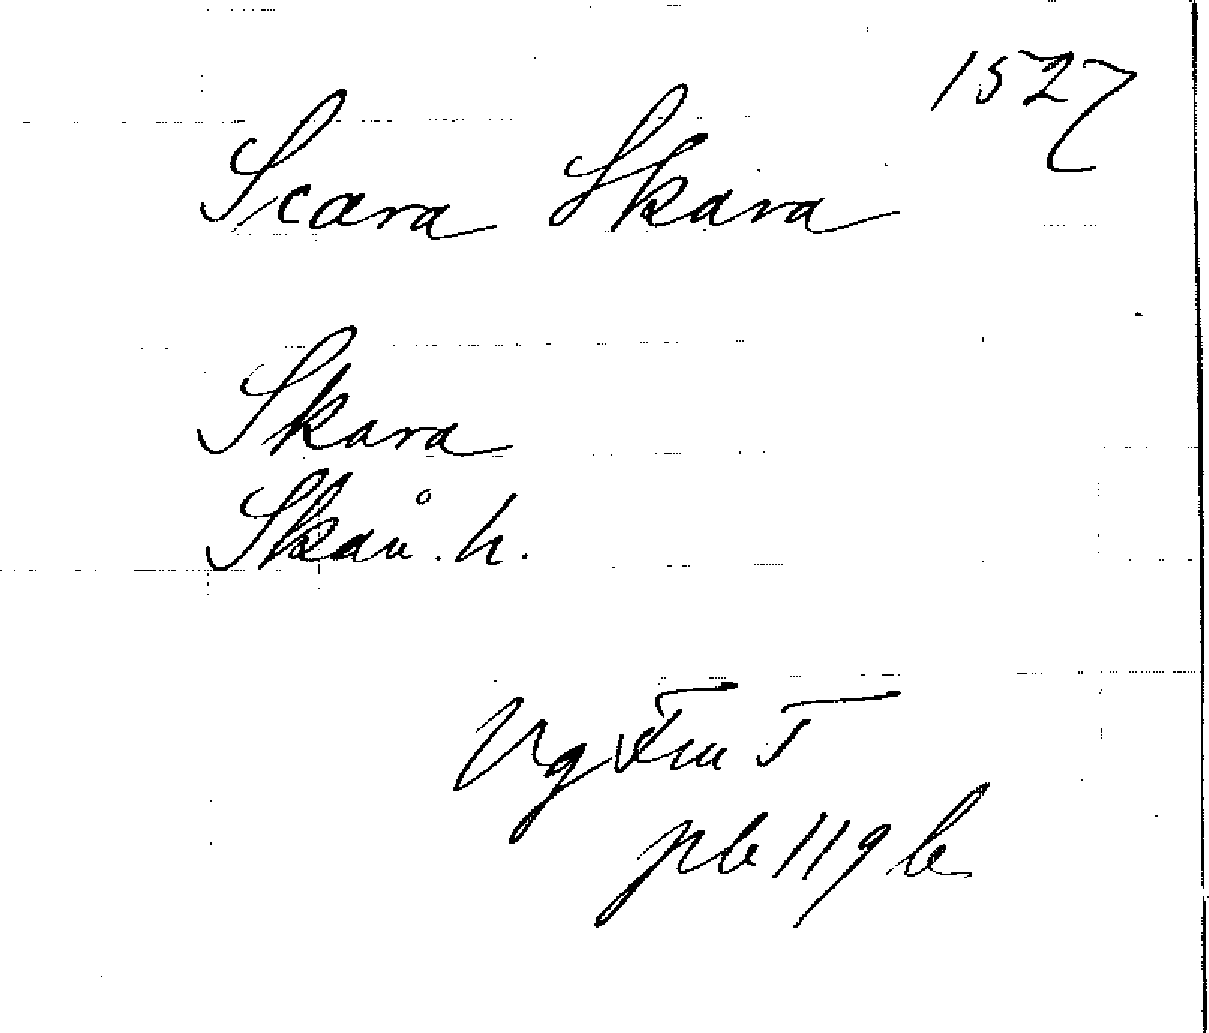 1527
Scara Skara
Skara
Skån. h.
Vg Fru T
pb 119 b